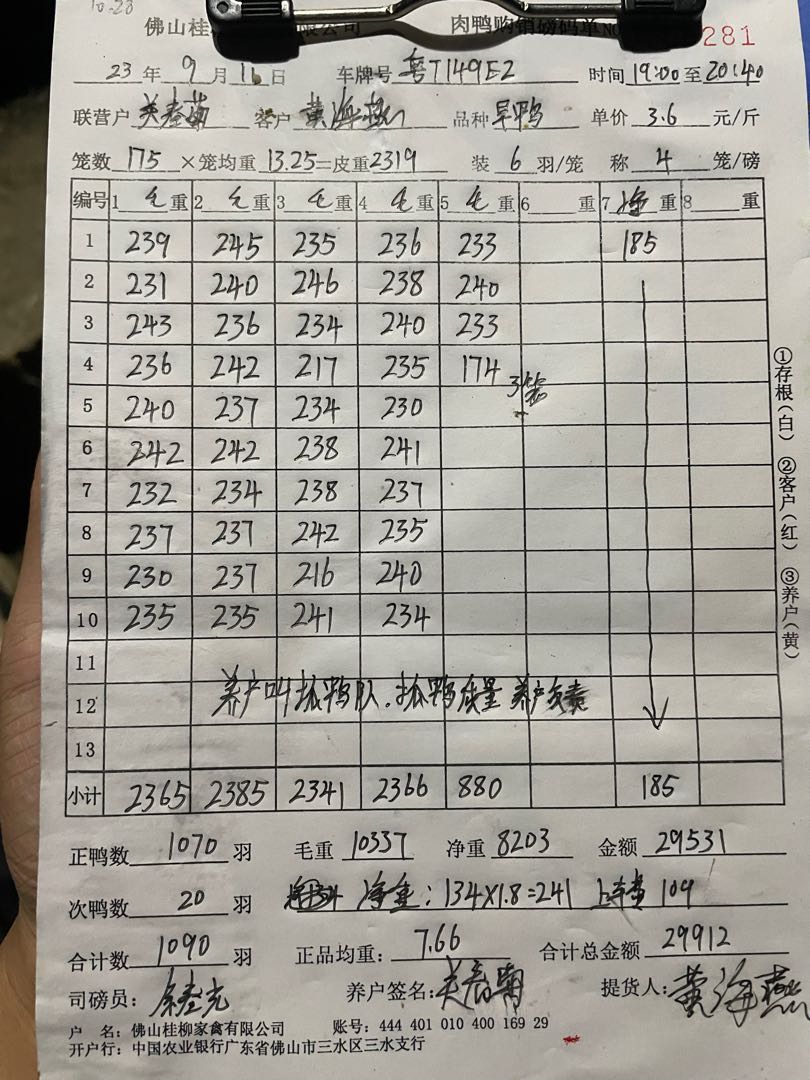 10-28
佛山桂 限公司 肉鸭购销磅码单NO 281
23年9月11日 车牌号 粤T149E2 时间19:00至20:40
联营户 关春菊 客户 黄海燕 品种 旱鸭 单价 3.6 元/斤
笼数 175 ×笼均重 13.25=皮重2319 装 6 羽/笼 称 4 笼/磅
编号 1 毛 重 2 毛 重 3 毛 重 4 毛 重 5 毛 重 6 重 7 净 重 8 重
1 239 245 235 236 233 185
2 231 240 246 238 240
3 243 236 234 240 233
4 236 242 217 235 174 3笼
5 240 237 234 230
6 242 242 238 241
7 232 234 238 237
8 237 237 242 235
9 230 237 216 240
10 235 235 241 234
11
12 养户叫抓鸭队.抓鸭质量养户负责
13
小计 2365 2385 2341 2366 880 185
正鸭数 1070 羽 毛重 10337 净重 8203 金额 29531
次鸭数 20 羽 净重:134×1.8=241 上车费 109
合计数 1090 羽 正品均重: 7.66 合计总金额 29912
司磅员: 养户签名: 关春菊 提货人: 黄海燕
户 名: 佛山桂柳家禽有限公司 账号: 444 401 010 400 169 29
开户行: 中国农业银行广东省佛山市三水区三水支行
①存根(白) ②客户(红) ③养户(黄)